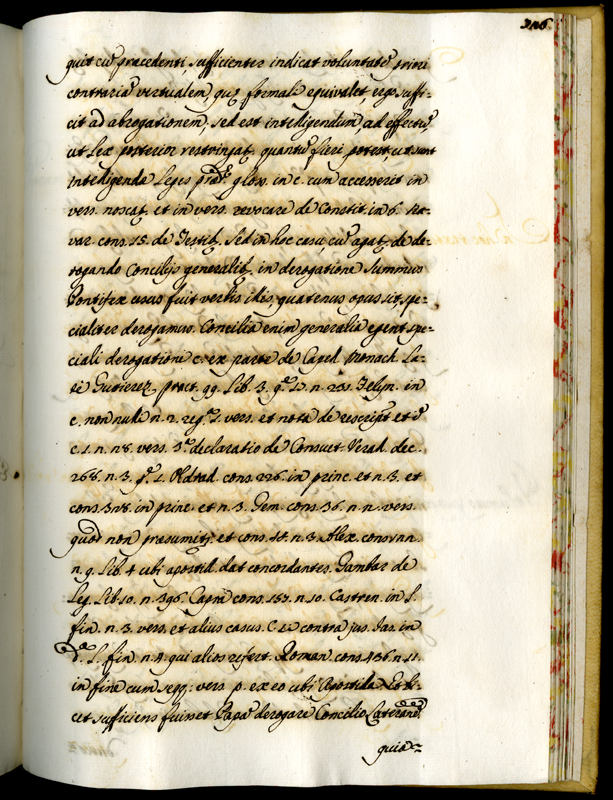 guit cũ praecedenti, sufficienter indicat voluntatẽ priori
contrariã virtualem, quę formali equivalet, ergo suffi-
cit ad abrogationem, sed est intelligendum, ad effectũ
ut Lex posterior restringat, quantũ fieri potest, ut sunt
intelligendę Leges glos. in c. cum accesserit in
vers. noscat, et in vers. revocare de Constit. in 6. Na-
var. cons. 15. de Testib. Sed in hoc casu, cũ agat de de-
rogando Concilijs generalib. in derogatione Summus
Pontifex usus fuit verbis illis, quatenus opus sit, spe-
cialiter derogamus. Concilia enim generalia egent spe-
ciali derogatione c. ex parte de Capell. Monach. La-
tè Gutierez. pract. qq. Lib. 3. n. 231. Felyn. in
c. non nulli n. 2. vers. et nota de rescript. et
c. 1. n. vers. declaratio de Consuet. Verall. dec.
268. n. 3. Oldrad. cons. 226. in princ. et n. 3. et
cons. in princ. et n. 3. Gem. cons. 36. n. vers.
quod non presumit. et cons. n. 3. Alex. cons.
n. 9. Lib. 4 ubi apostil. dat concordantes. Gambar. de
Leg. Lib. 10. n. 396. Capra cons. 153. n. 10. Castren. in L.
fin. n. 3. vers. et alius casus. C. contra jus. Jas. in
L. fin. n. 4. qui alios refert. Roman. cons. 436. n. 11.
in fine cum seqq: vers. p. ex eo ubi Apostilla. Et li-
cet sufficiens fuisset Papã derogare Concilio Lateranẽ.
quia